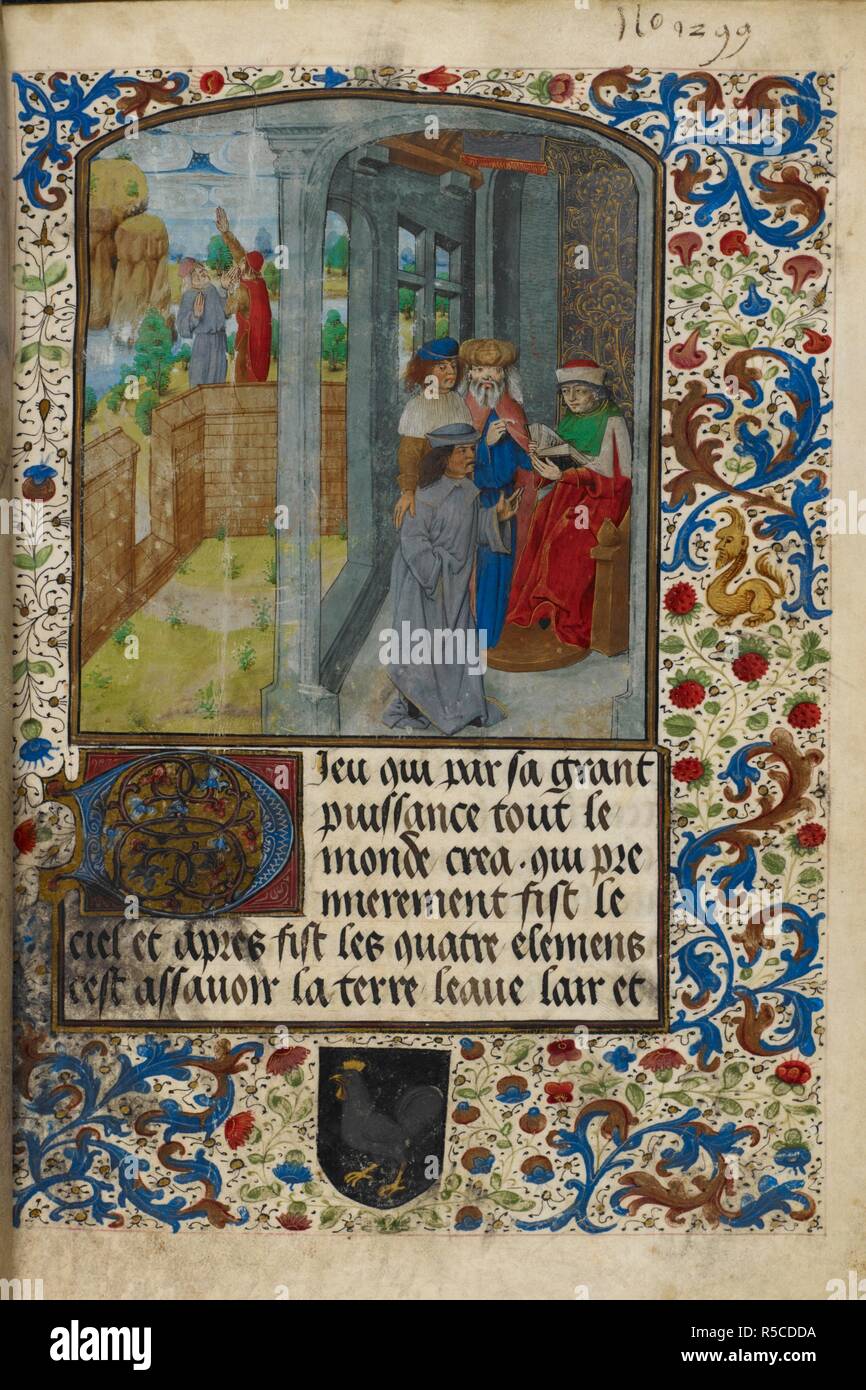 No 1299
Dieu qui par sa grant
puissance tout le
monde crea · qui pre
mierement fist le
ciel et apres fist les quatre elemens
cest assavoir la terre leaue lair et
alamy
Image ID: R5CDDA
www.alamy.com